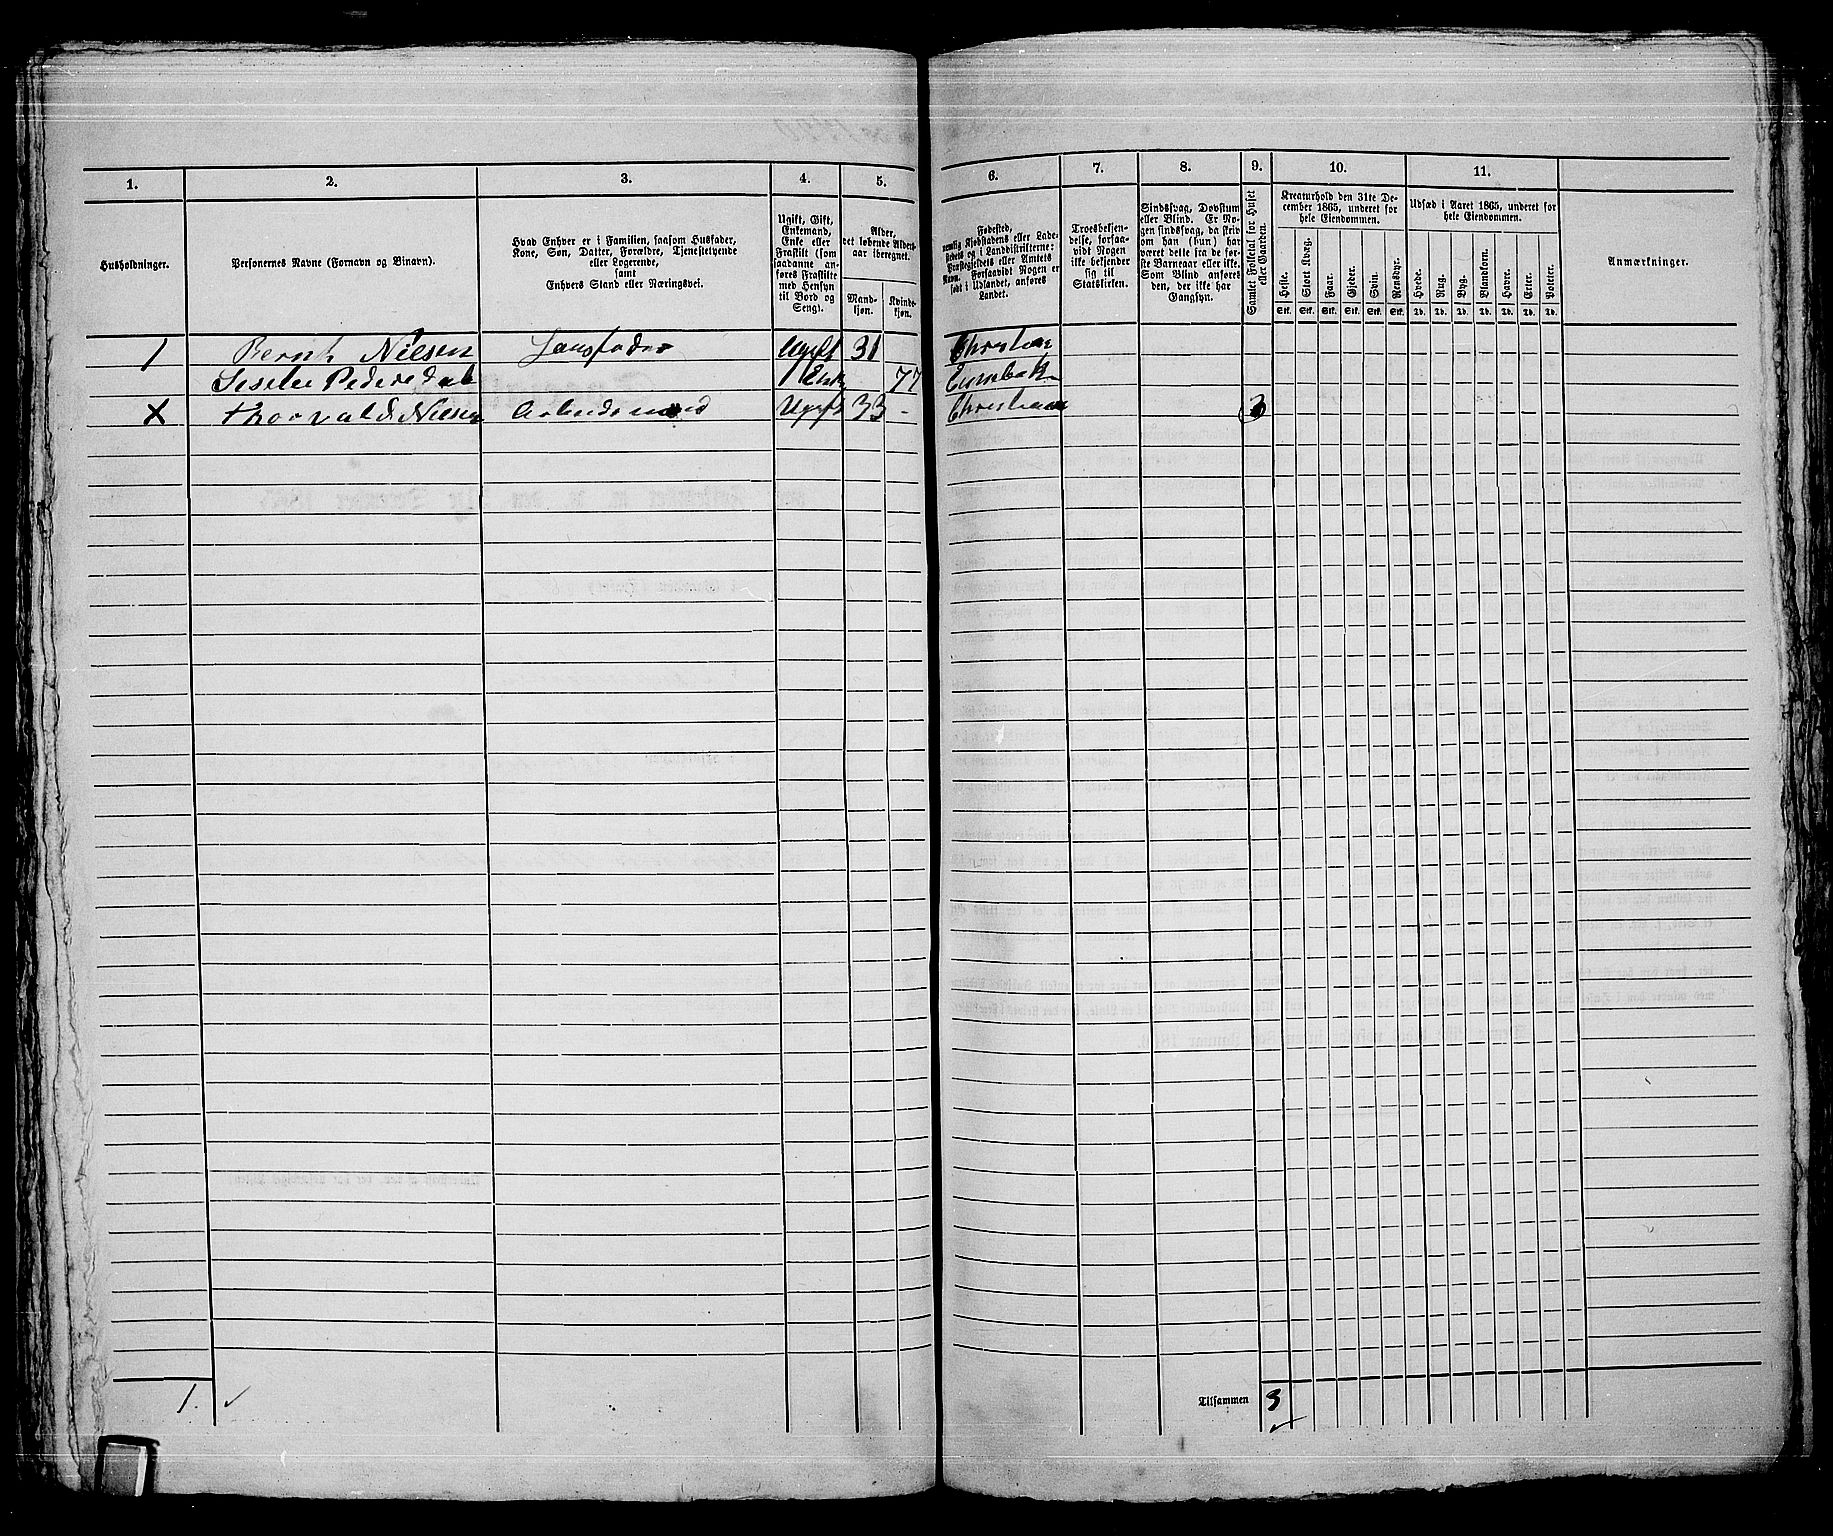 1. 2. 3. 4. 5. 6. 7. 8. 9. 10. 11.
Husholdninger.
Personernes Navne (Fornavn og Binavn).
Hvad Enhver er i Familien, saasom Husfader,
Kone, Søn, Datter, Forældre, Tjenestetyende
eller Logerende,
samt
Enhvers Stand eller Næringsvei.
Ugift, Gift,
Enkemand,
Enke eller
Fraskilt (som
saadanne an-
føres Fraskilte
med Hensyn
til Bord og
Seng).
Alder,
det løbende Alders-
aar iberegnet.
Mand-
kjøn.
Kvinde-
kjøn.
Fødested,
nemlig Kjøbstadens eller Lade-
stedets og i Landdistrikterne:
Præstegjeldets eller Amtets
Navn. Forsaavidt Nogen er
født i Udlandet, anføres
Landet.
Troesbekjen-
delse, forsaa-
vidt Nogen
ikke bekjender
sig til
Statskirken.
Sindssvag, Døvstum
eller Blind. Er No-
gen sindssvag, da skriv
om han (hun) har
været dette fra de før-
ste Barneaar eller ikke.
Som Blind anføres
den, der ikke har
Gangsyn.
Samlet Folketal for Huset
eller Gaarden.
Kreaturhold den 31te De-
cember 1865, underet for
hele Eiendommen.
Heste. Stort Kvæg. Faar. Gjeder. Svin. Rensdyr.
Stk. Stk. Stk. Stk. Stk. Stk.
Udsæd i Aaret 1865, underet for
hele Eiendommen.
Hvede. Rug. Byg. Blandkorn. Havre. Erter. Poteter.
Td. Td. Td. Td. Td. Td. Td.
Anmærkninger.
1 Bernh Nilsen Ugift 31
Pedersdat Enke 77
X Thorvald Nilsen Arbeidsmand Ugift 33 - 3
1. Tilsammen 3